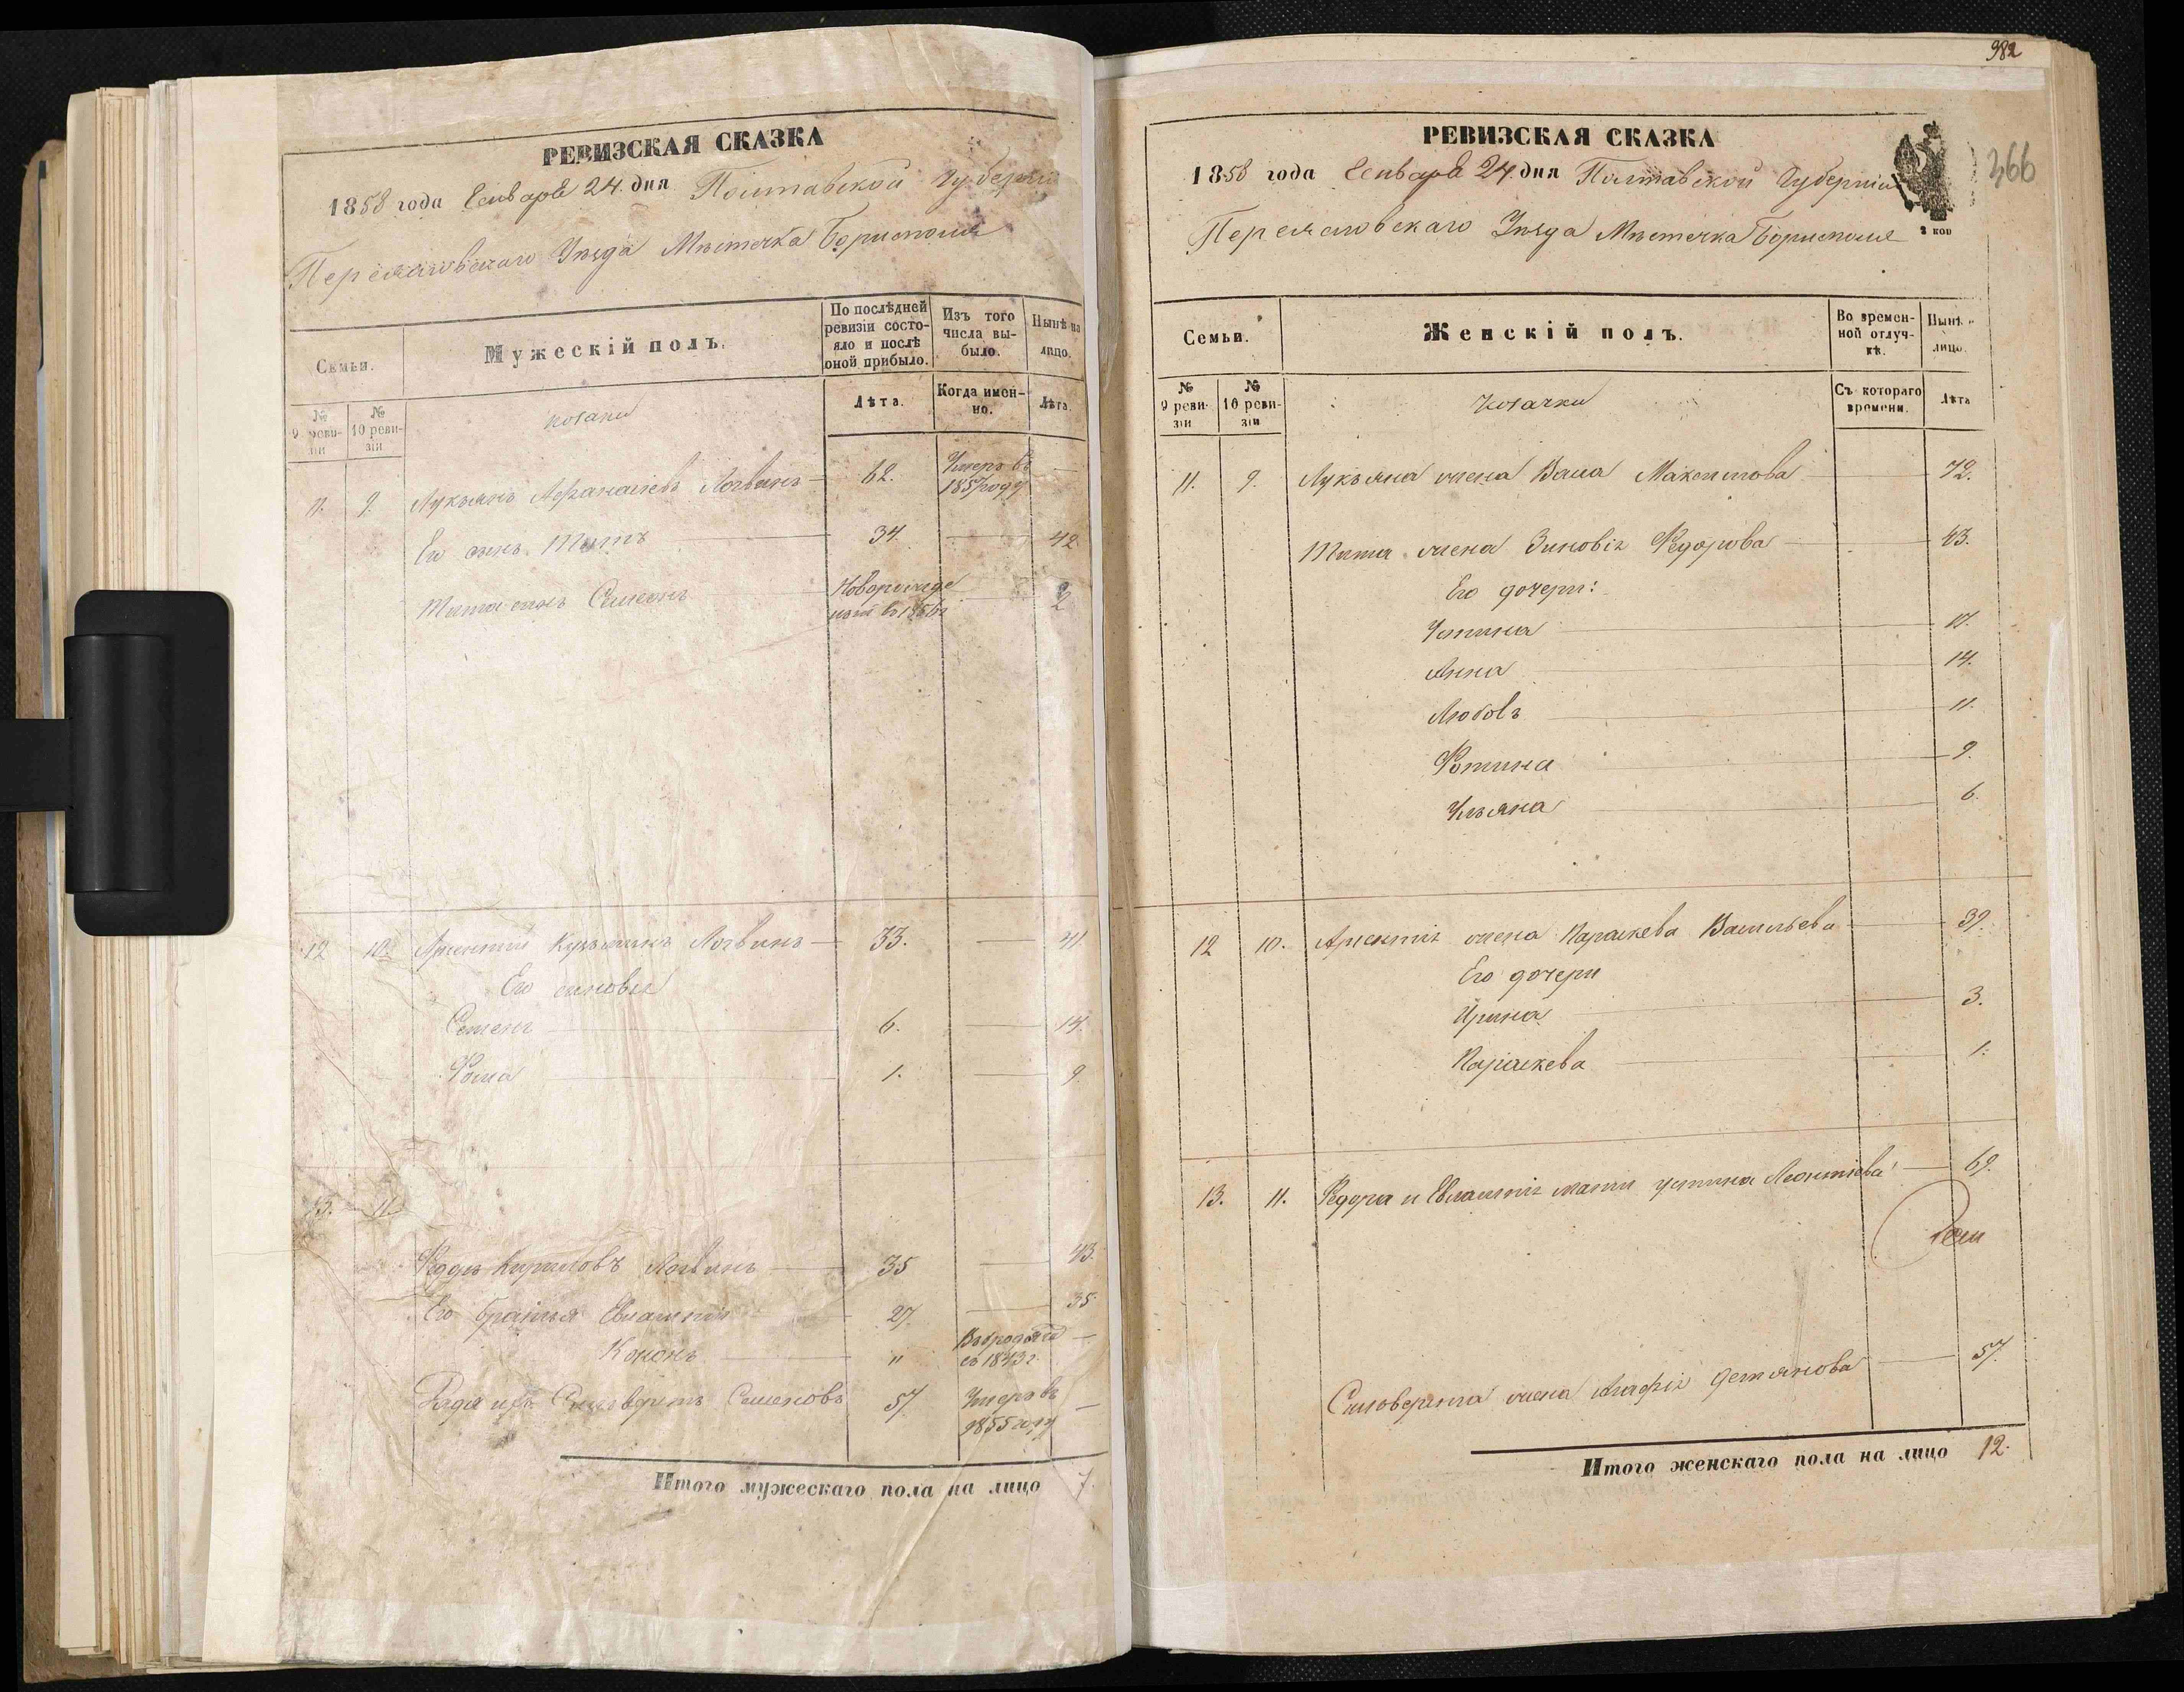 РЕВИЗСКАЯ СКАЗКА
1858 года Генваря 24 дня Полтавской Губернии
Переяславскаго Уѣзда Мѣстечка Борисполя
Семьи.
Мужескій полъ.
По послѣдней ревизіи состояло и послѣ оной прибыло.
Изъ того числа выбыло.
Нынѣ на лицо.
№ 9 ревизіи
№ 10 ревизіи
козаки
Лѣта.
Когда именно.
Лѣта.
11. 9. Лукьянъ Афанасіевъ Логвинъ 62. Умеръ въ 1857 году —
Его сынъ Титъ 34. — 42.
Тита сынъ Симеонъ Новорожде нный въ 1856 г — 2
12 10. Арсентій Кузьминъ Логвинъ 33. — 41
Его сыновья
Семенъ 6. — 14.
Фома 1. — 9
13. 11.
Федоръ Кириловъ Логвинъ 35 — 43.
Его братья Евлампій 27. — 35.
Кононъ " съ 1843 г. —
Дядя ихъ Семеновъ 57. Умеръ въ 1855 году —
Итого мужескаго пола на лицо 7.
982
366
РЕВИЗСКАЯ СКАЗКА
1858 года Генваря 24 дня Полтавской Губерніи
Переяславскаго Уѣзда Мѣстечка Борисполя
3 коп
Семьи.
Женскій полъ.
Во временной отлучкѣ.
Нынѣ лицо.
№ 9 ревизіи
№ 10 ревизіи
козачки
Съ котораго времени.
Лѣта
11. 9. Лукьяна жена Васса Максимова 72.
Тита жена Зиновія Федорова 43.
Его дочери:
Устина 17.
Анна 14.
Любовь 11.
Фотина 9.
Ульяна 6.
12 10. Арсентія жена Параскева Васильева 39.
Его дочери
Ирина 3.
Параскева 1.
13. 11. Федора и Евлампія мати Устина Леонтіева 69.
жена Агафія Демянова 57.
Итого женскаго пола на лицо 12.